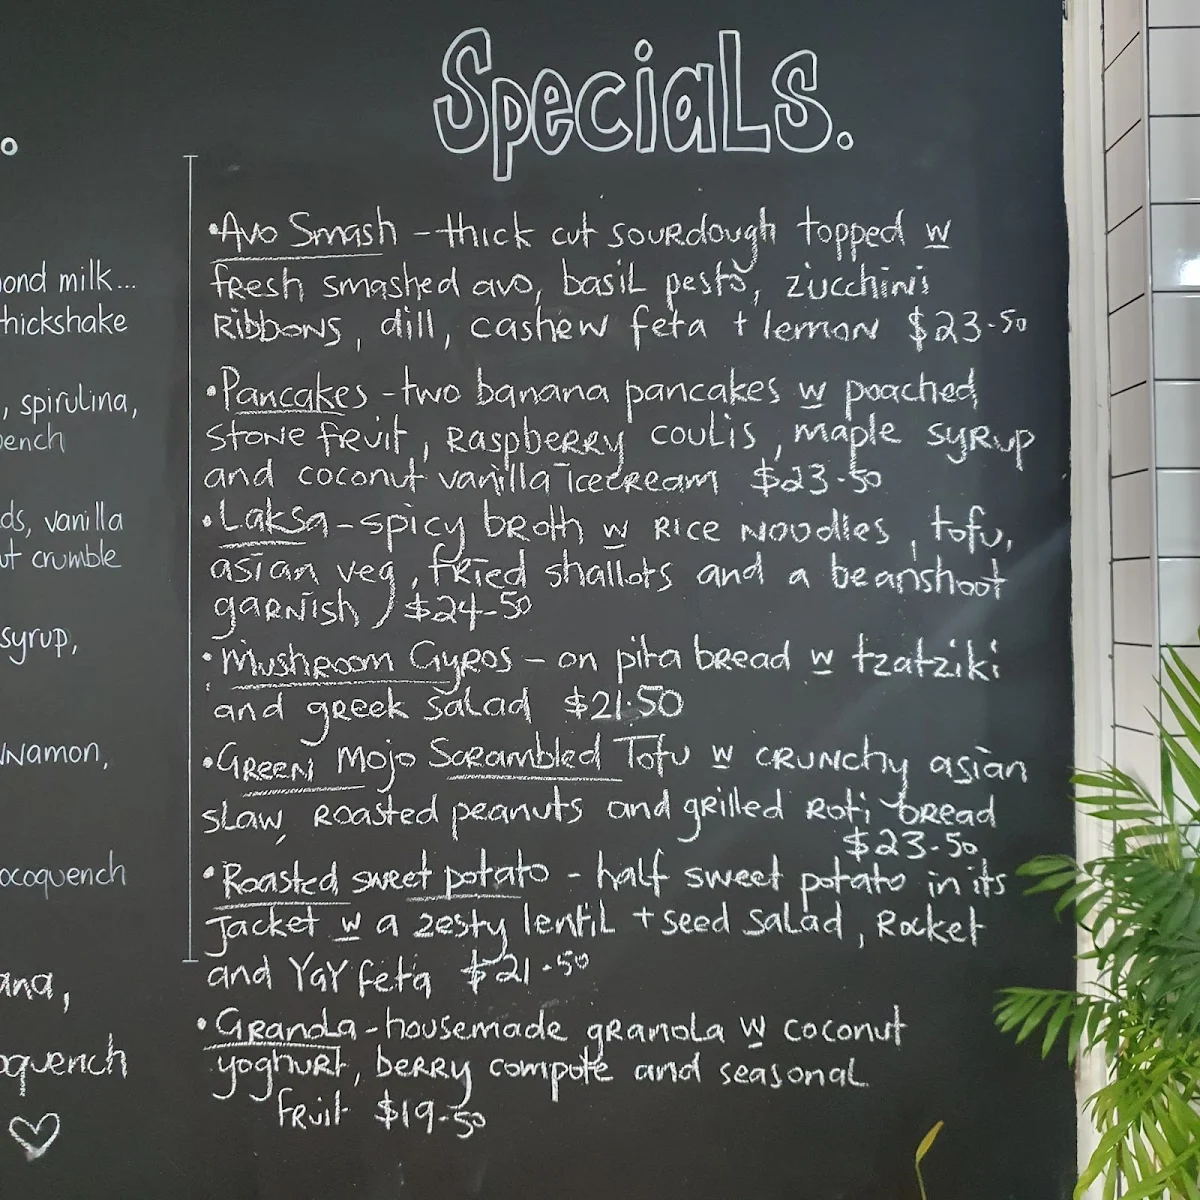 Specials.
•Avo Smash - thick cut sourdough topped w
fresh smashed avo, basil pesto, zucchini
Ribbons, dill, cashew feta + lemon $23.50
•Pancakes - two banana pancakes w poached
stone fruit, Raspberry coulis, maple syrup
and coconut vanilla icecream $23.50
•Laksa - spicy broth w Rice Noodles, tofu,
asian veg, fried shallots and a beanshoot
garnish $24-50
•Mushroom Gyros - on pita bread w tzatziki
and greek salad $21.50
•Green Mojo Scrambled Tofu w crunchy asian
slaw, Roasted peanuts and grilled Roti bread
$23-50
•Roasted sweet potato - half sweet potato in its
jacket w a zesty lentil + seed salad, Rocket
and YaY feta $21.50
•Granola - housemade granola w coconut
yoghurt, berry compote and seasonal
fruit $19-50
ond milk...
hickshake
, spirulina,
ench
ds, vanilla
ut crumble
syrup,
nnamon,
ocoquench
ana,
oquench